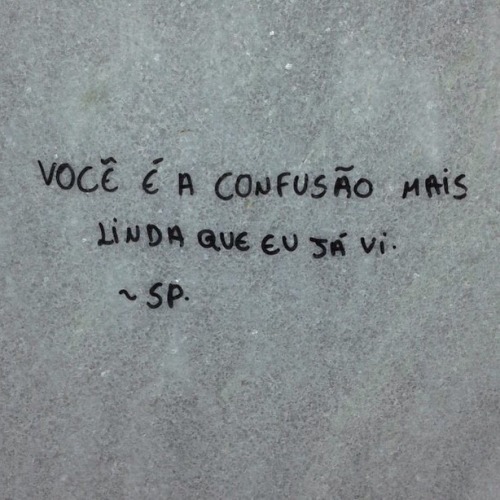 VOCÊ É A CONFUSÃO MAiS
LiNDA QUE EU JÁ Vi.
~ SP.